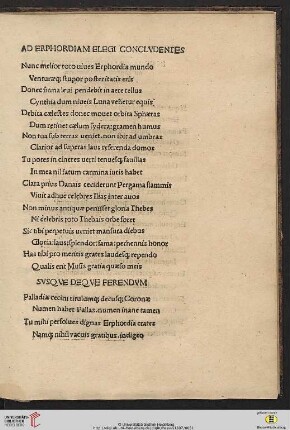 AD ERPHORDIAM ELEGI CONCLVDENTES
Nunc melior toto uiues Erphordia mundo
Venturæq; stupor posteritatis eris
Donec firma leui pendebit in aere tellus
Cynthia dum niueis Luna uehetur equis
Debita cælestes donec mouet orbita Sphæras
Dum retinet cælum sydera: gramen humus
Non tua sub terras ueniet. non ibit ad umbras
Clarior ad superas laus referenda domos
Tu potes in cineres uerti tenuesq; fauillas
In mea nil fatum carmina iuris habet
Clara prius Danais ceciderunt Pergama flammis
Viuit adhuc celebres Ilias inter auos
Non minus antiquæ periisset gloria Thebes
Ni celebris toto Thebais orbe foret
Sic tibi perpetuis ueniet mansura diebus
Gloria: laus: splendor: fama: perhennis honor
Has tibi pro meritis grates laudesq; rependo
Qualis erit Musis gratia quæso meis
SVSQVE DEQVE FERENDVM
Palladiæ cecini titulumq; decusq; Coronæ
Numen habet Pallas. numen inane tamen
Tu mihi persolues dignas Erphordia grates
Namq; nihil uacuis gratibus indigeo